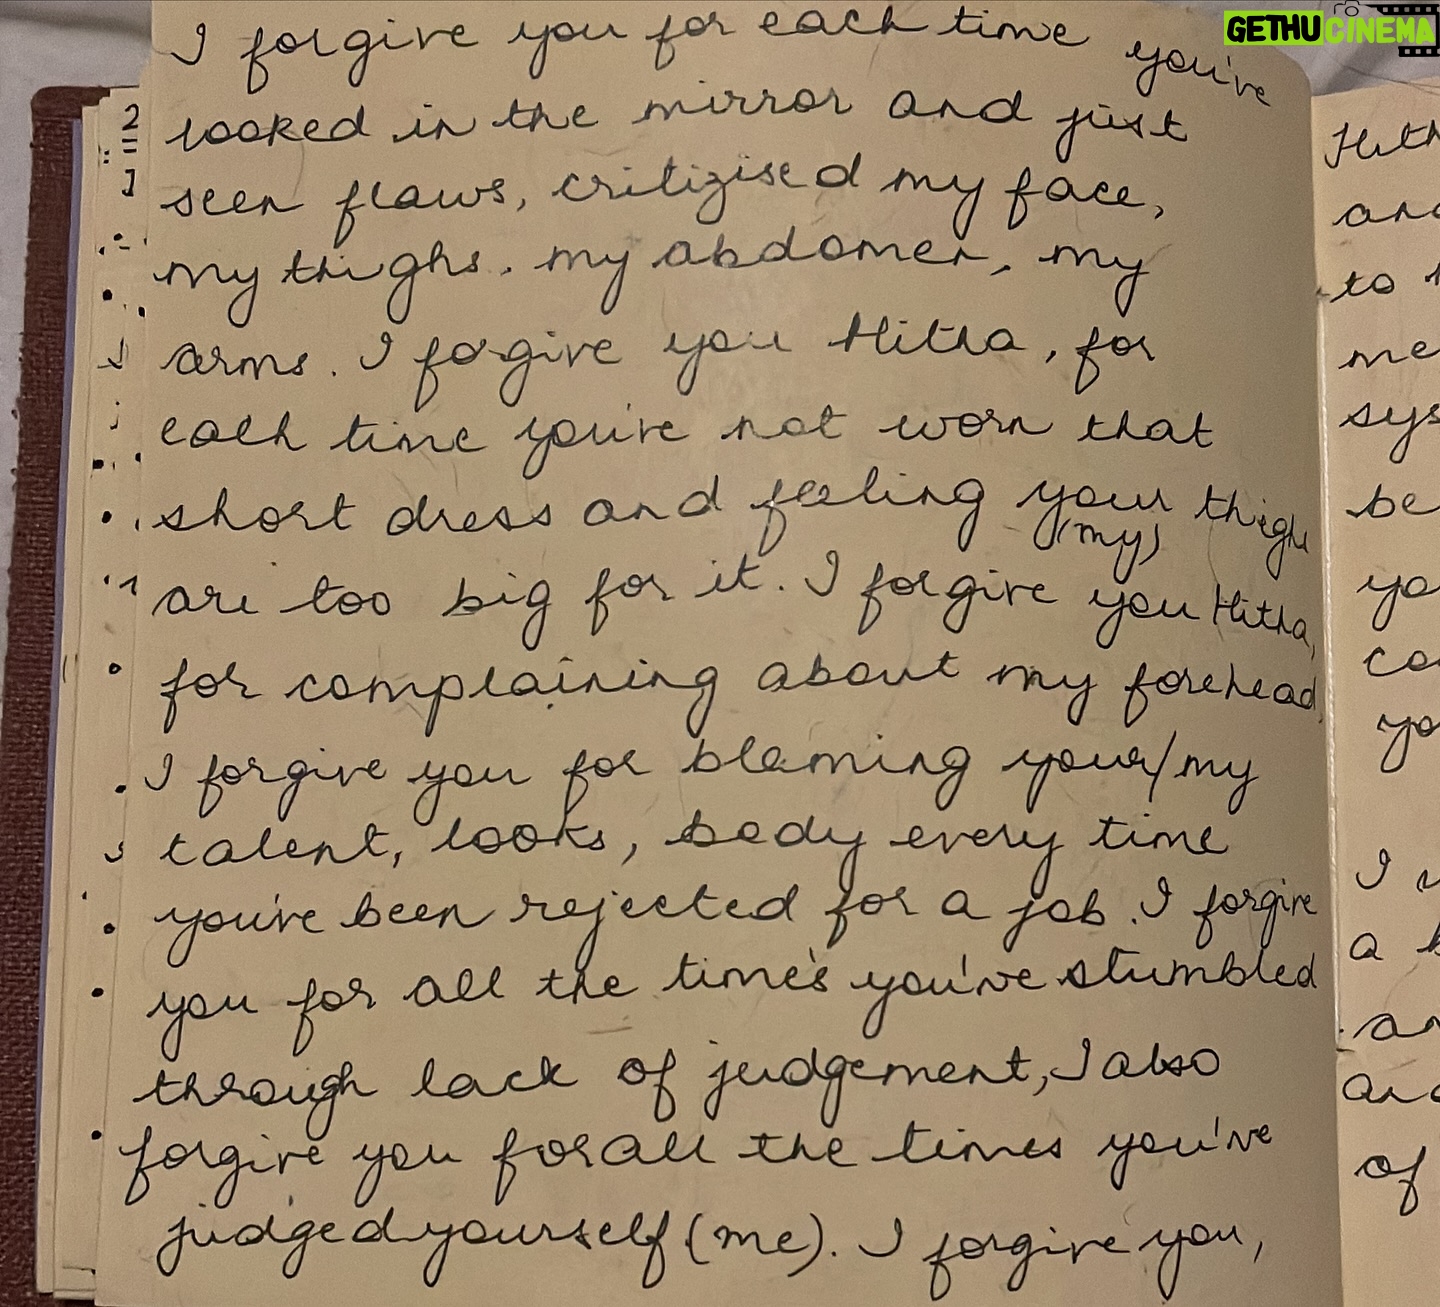 GETHU CINEMA
I forgive you for each time you've
looked in the mirror and just
seen flaws, critizised my face,
my thighs, my abdomen, my
arms. I forgive you Hitha, for
each time you've not worn that
short dress and feeling your thighs
(my)
are too big for it. I forgive you Hitha,
for complaining about my forehead,
I forgive you for blaming your/my
talent, looks, body every time
you've been rejected for a job. I forgive
you for all the time's you've stumbled
through lack of judgement, I also
forgive you for all the times you've
judged yourself (me). I forgive you,
to
me
sys
be
yo
co
yo
I
a
of